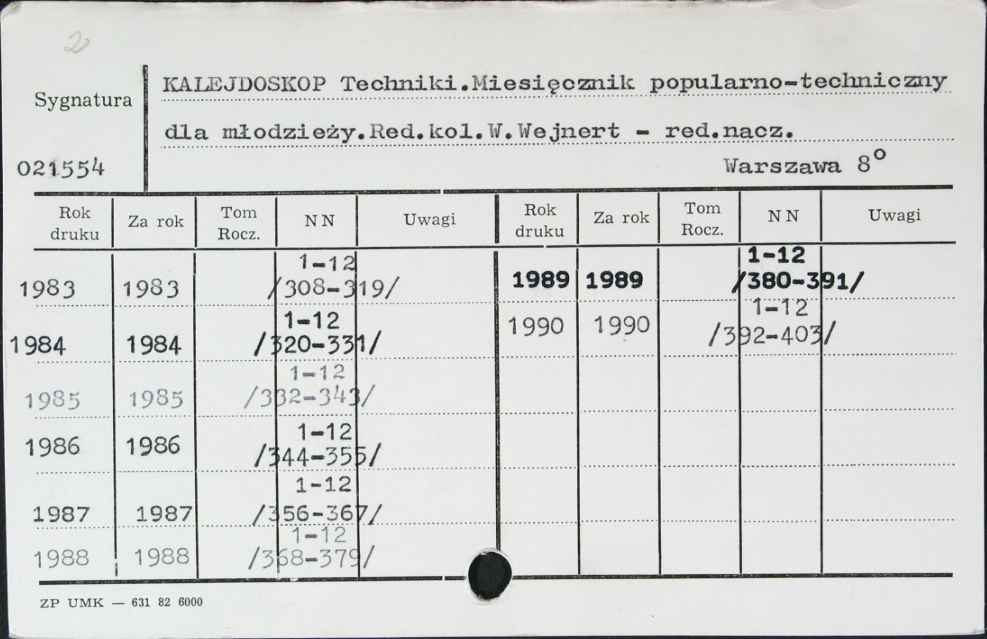 2
Sygnatura
021554
KALEJDOSKOP Techniki.Miesięcznik popularno-techniczny
dla młodzieży.Red.kol.W.Wejnert - red.nacz.
Warszawa 8°
Rok druku Za rok Tom Rocz. N N Uwagi Rok druku Za rok Tom Rocz. N N Uwagi
1983 1983 1-12 /308-319/ 1989 1989 1-12 /380-391/
1984 1984 1-12 /320-331/ 1990 1990 1-12 /392-403/
1985 1985 1-12 /332-343/
1986 1986 1-12 /344-355/
1987 1987 1-12 /356-367/
1988 1988 1-12 /368-379/
ZP UMK — 631 82 6000